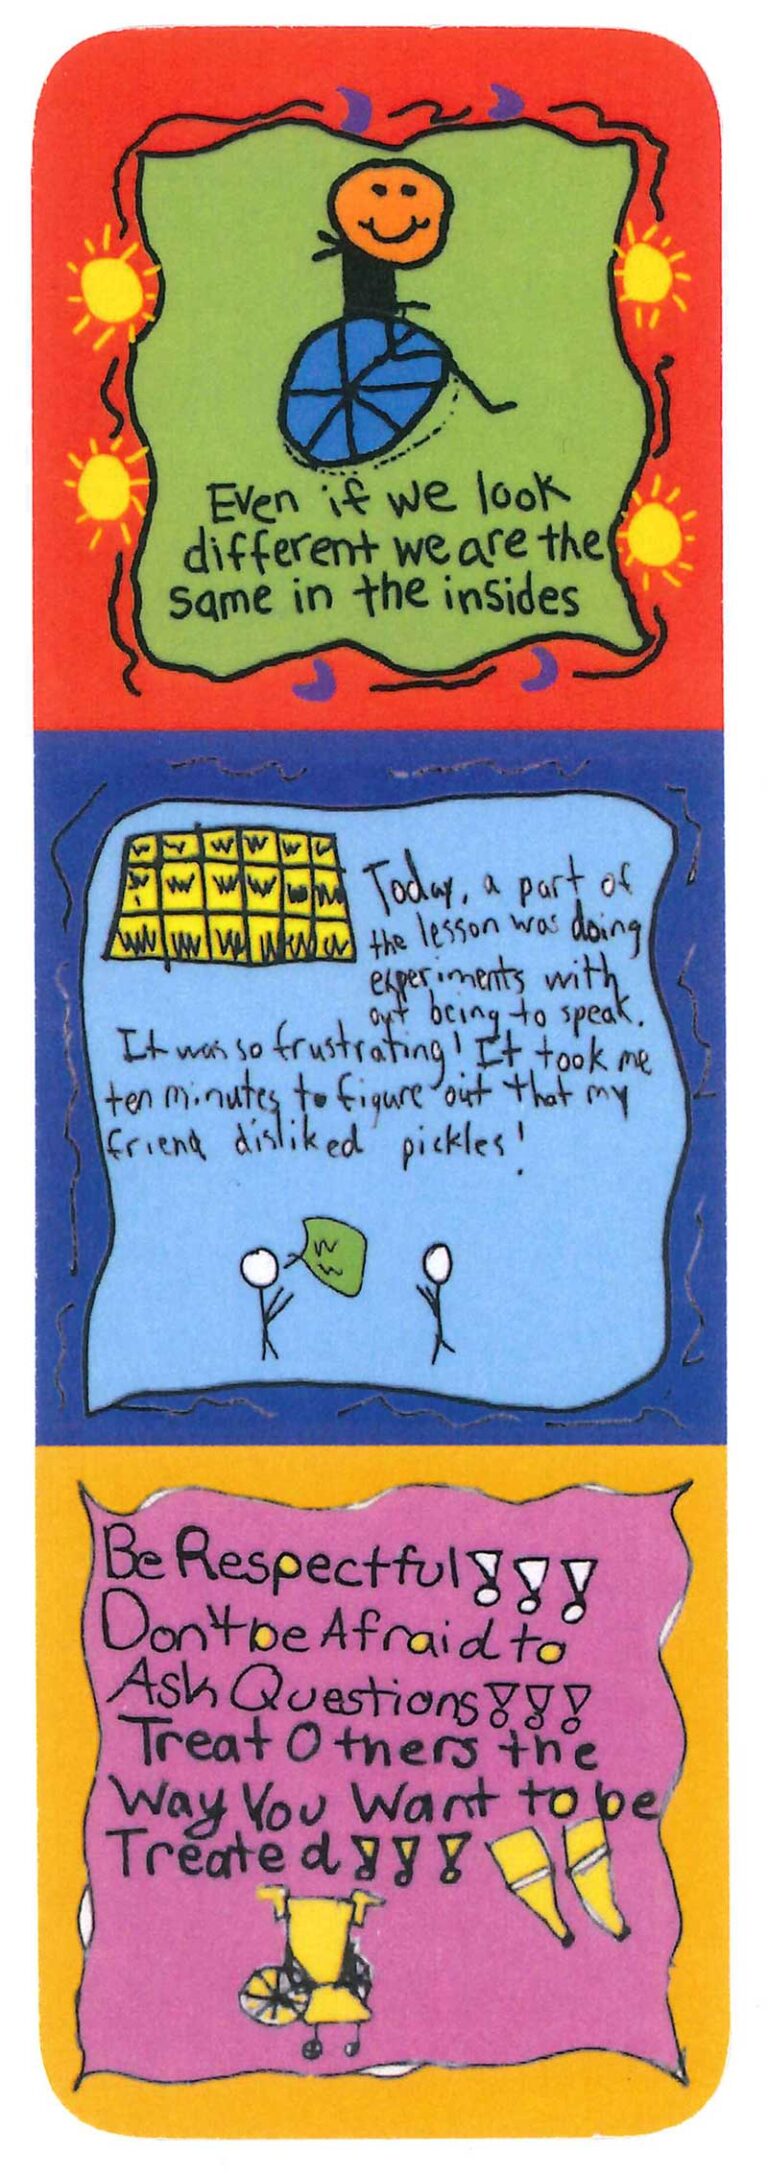 Even if we look
different we are the
same in the insides
Today, a part of
the lesson was doing
experiments with
out being to speak.
It was so frustrating! It took me
ten minutes to figure out that my
friend disliked pickles!
W
W
Be Respectful!!!
Don't be Afraid to
Ask Questions!!!
Treat Others the
Way You Want to be
Treated!!!